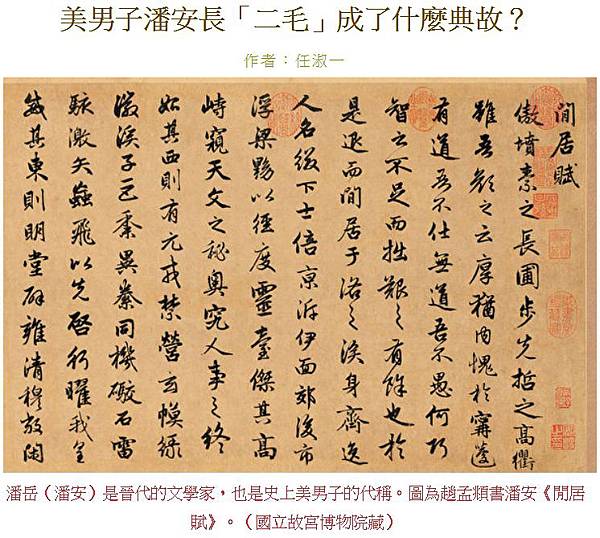 美男子潘安長「二毛」成了什麼典故？
作者：任淑一
閒居賦
傲墳素之長圃步先哲之高衢
雖吾顏之云厚猶內愧於甯蘧
有道吾不仕無道吾不愚何巧
智之不足而拙艱之有餘也於
是退而閒居于洛之涘身齊逸
人名綴下士倍京泝伊面郊後市
浮梁黝以徑度靈臺傑其高
峙窺天文之秘奧究人事之終
始其西則有元戎禁營玄幙綠
徽溪子巨黍異絭同機礮石雷
駭激矢蟲飛以先啓行曜我皇
威其東則明堂辟雍清穆敞閑
潘岳（潘安）是晉代的文學家，也是史上美男子的代稱。圖為趙孟頫書潘安《閒居
賦》。（國立故宮博物院藏）